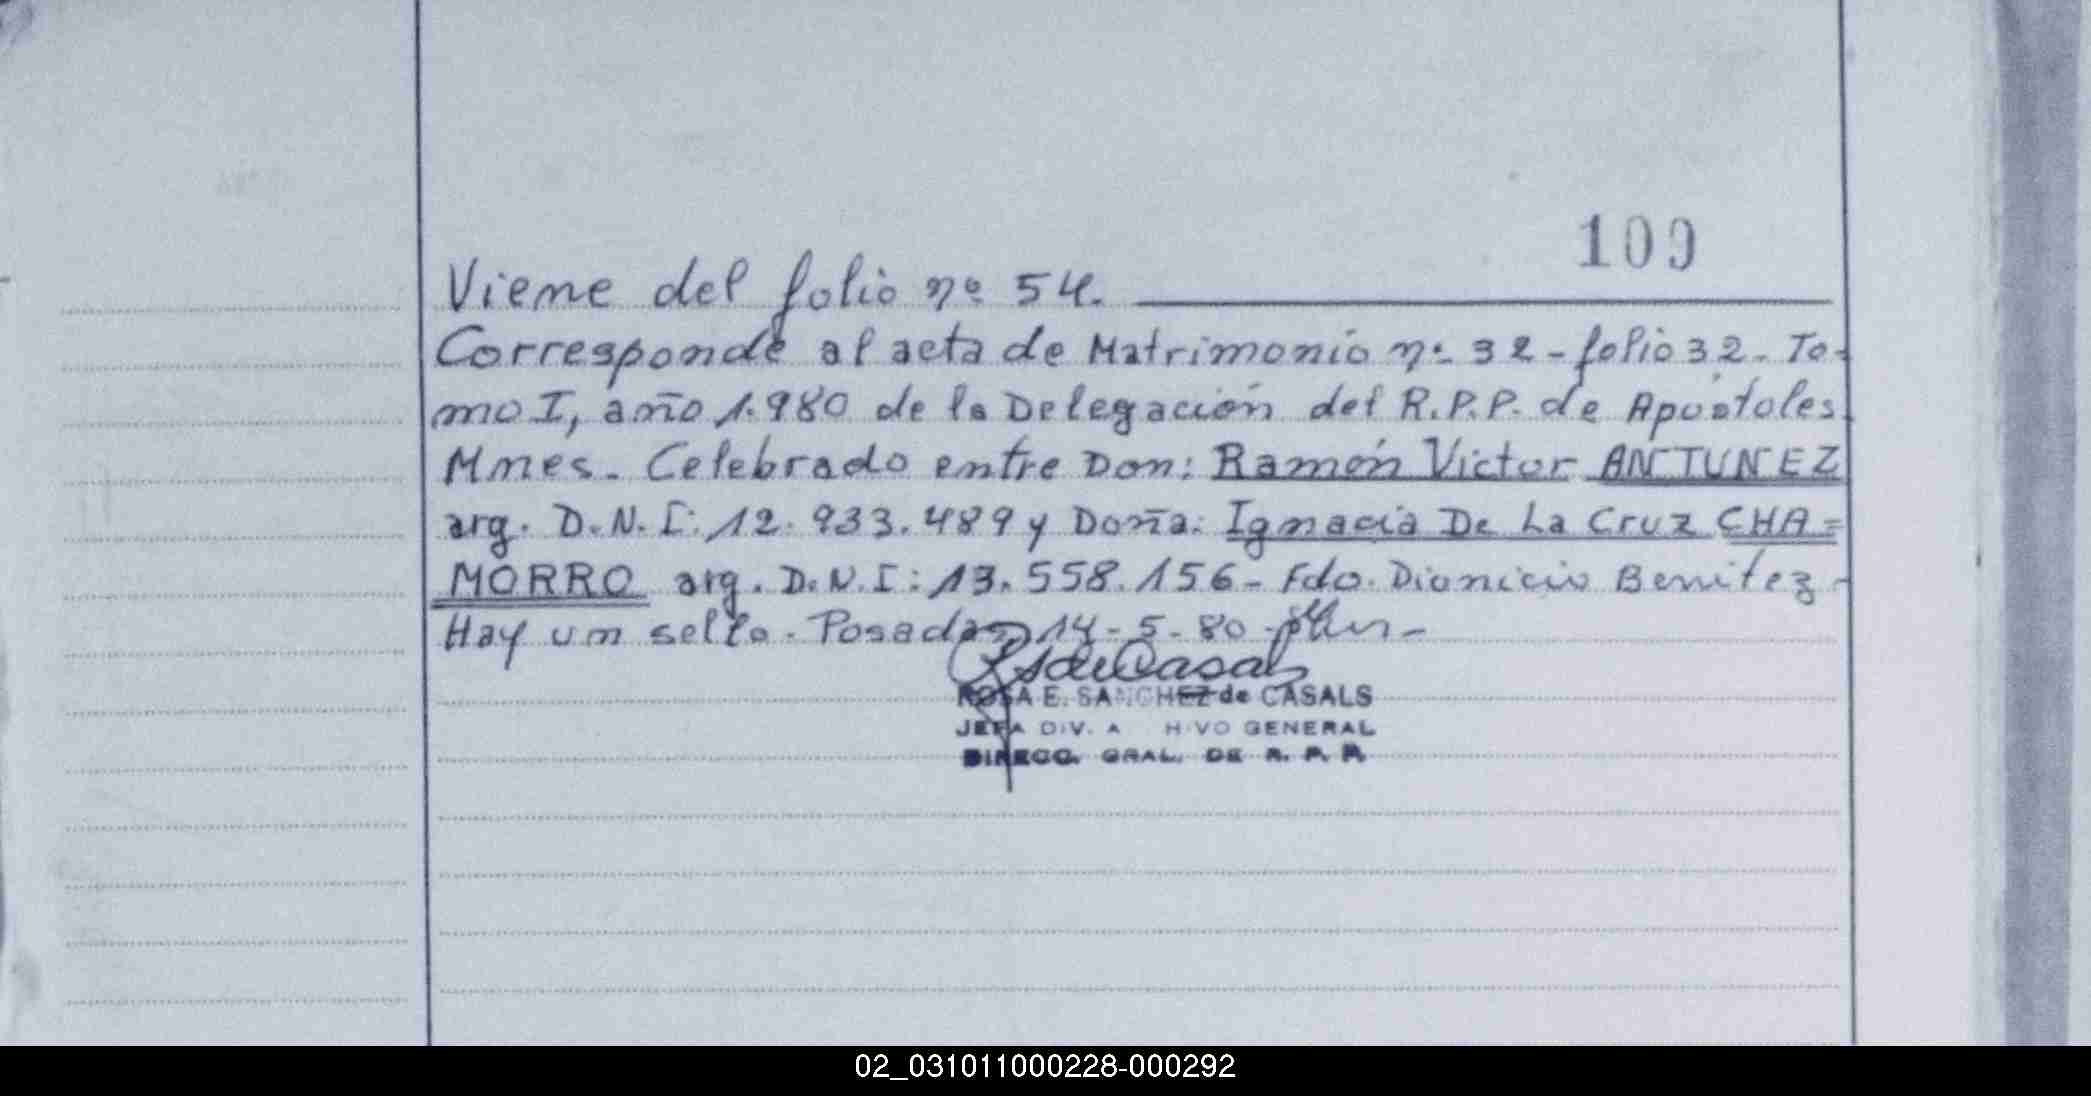 109
Viene del folio nº 54.
Corresponde al acta de Matrimonio nº 32 - folio 32. To-
mo I, año 1.980 de la Delegación del R.P.P. de Apóstoles
Mnes. Celebrado entre Don: Ramón Victor ANTUNEZ
arg. D.N.I: 12.933.489 y Doña: Ignacia De La Cruz CHA=
MORRO arg. D.N.I: 13.558.156 - Fdo. Dionicio Benitez -
Hay un sello. Posadas, 14-5-80
ROSA E. SANCHEZ de CASALS
JEFA DIV. A HIVO GENERAL
DIRECC. GRAL. DE R. P. P.
02_031011000228-000292